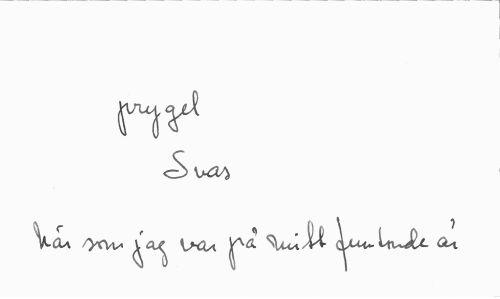 prygel
Svas
När som jag var på mitt femtonde år